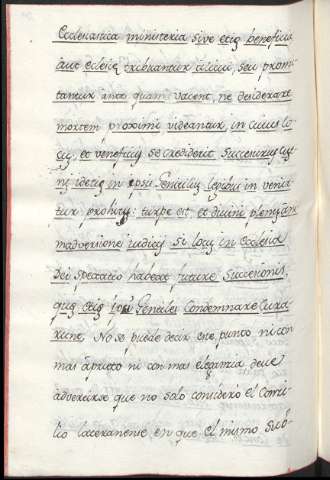 Ecclesiastica ministeria sive etiā beneficia
aut eclesię tribuantur alicui, seu promi
tantur ante quam vacent, ne desiderare
mortem proximi videantur in cuius lo
cū, et veneficiū se crediderit successurū cū
in ipsis Gentiliū legibus in venia
tur prohivitū: turpe est, et divini plenū
animadversione judicii si locū in ecclesia
Dei spectatio habeat future successionis,
quā etiā ipsi Gentiles Condemnare cura
runt, No se puede decir este punto ni con
mas aprieto ni con mas elegancia deve
adverirse que no solo considero el Conci
lio lateranense en que el mismo Sub